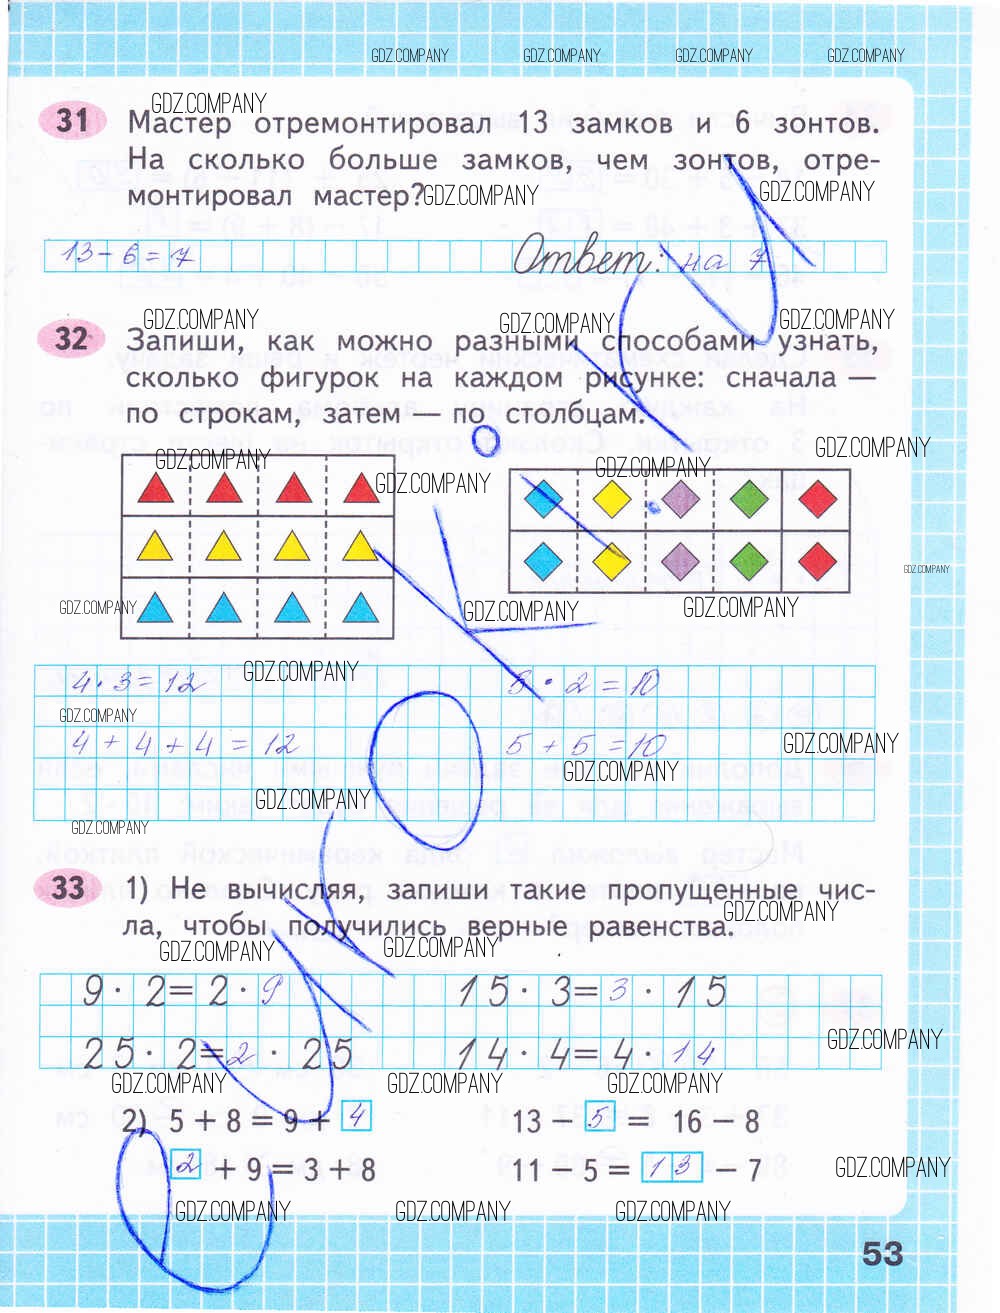 GDZ.COMPANY GDZ.COMPANY GDZ.COMPANY GDZ.COMPANY
GDZ.COMPANY
31 Мастер отремонтировал 13 замков и 6 зонтов.
На сколько больше замков, чем зонтов, отре-
монтировал мастер? GDZ.COMPANY GDZ.COMPANY
13 - 6 = 7 Ответ: на 7
GDZ.COMPANY GDZ.COMPANY GDZ.COMPANY
32 Запиши, как можно разными способами узнать,
сколько фигурок на каждом рисунке: сначала —
по строкам, затем — по столбцам.
GDZ.COMPANY GDZ.COMPANY GDZ.COMPANY
GDZ.COMPANY
GDZ.COMPANY
GDZ.COMPANY GDZ.COMPANY GDZ.COMPANY
GDZ.COMPANY
4 · 3 = 12 5 · 2 = 10
GDZ.COMPANY
4 + 4 + 4 = 12 5 + 5 = 10 GDZ.COMPANY
GDZ.COMPANY
GDZ.COMPANY
GDZ.COMPANY
33 1) Не вычисляя, запиши такие пропущенные чис-
GDZ.COMPANY
ла, чтобы получились верные равенства.
GDZ.COMPANY GDZ.COMPANY
9 · 2 = 2 · 9 15 · 3 = 3 · 15
GDZ.COMPANY
25 · 2 = 2 · 25 14 · 4 = 4 · 14
GDZ.COMPANY GDZ.COMPANY GDZ.COMPANY
2) 5 + 8 = 9 + 4 13 5 = 16 − 8
2 + 9 = 3 + 8 11 5 = 13 − 7 GDZ.COMPANY
GDZ.COMPANY GDZ.COMPANY GDZ.COMPANY
53